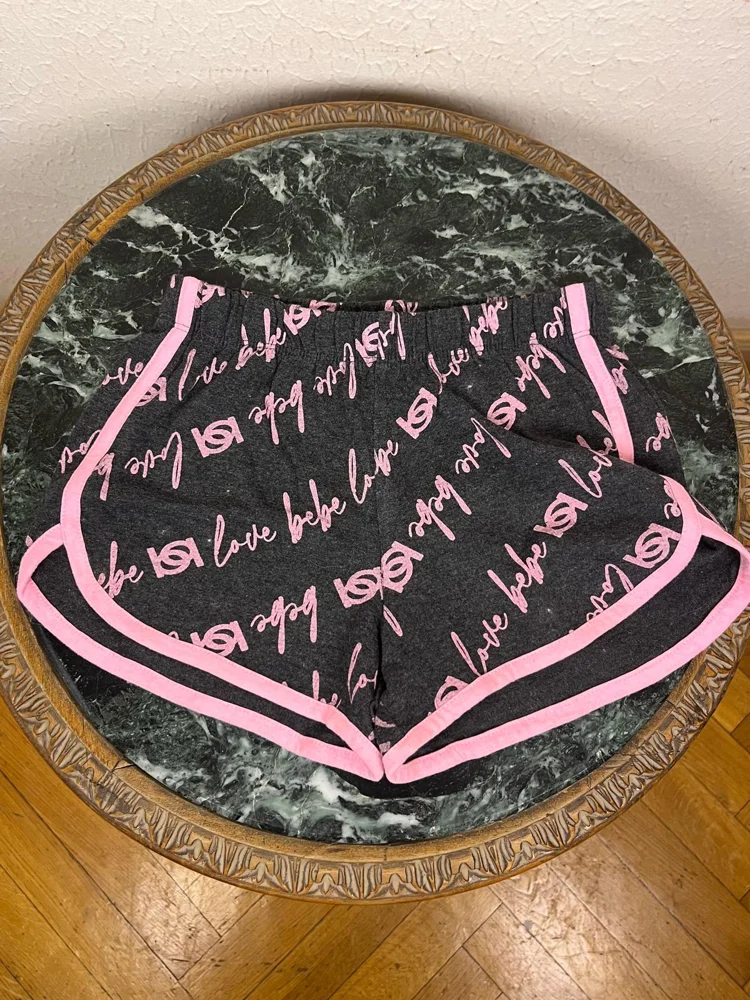 love bebe
love bebe
love bebe
love bebe love
love bebe
bebe
love bebe
love bebe
love